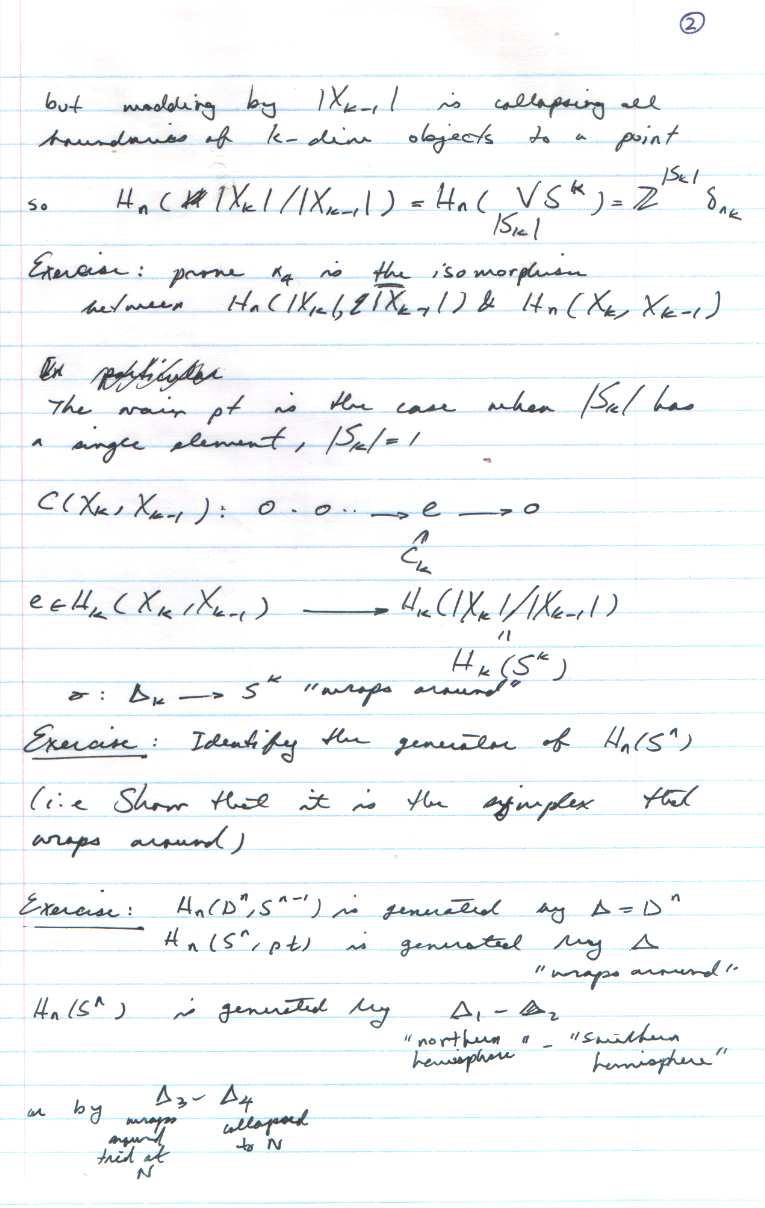 ②
but modding by |X_{k-1}| is collapsing all
boundaries of k-dim objects to a point
so H_n( |X_k|/|X_{k-1}|) = H_n( ∨S^k ) = ℤ^{|S_k|} δ_{nk}
|S_k|
Exercise: prove α_4 is the isomorphism
between H_n(|X_k|, |X_{k-1}|) & H_n(X_k, X_{k-1})
The main pt is the case when |S_k| has
a single element, |S_k| = 1
C(X_k, X_{k-1}): 0 . 0 .. → e → 0
C_k
e ∈ H_k(X_k, X_{k-1}) → H_k(|X_k|/|X_{k-1}|)
"
H_k(S^k)
σ: Δ_k → S^k "wraps around"
Exercise: Identify the generator of H_n(S^n)
(i.e Show that it is the symplex that
wraps around)
Exercise: H_n(D^n, S^{n-1}) is generated by Δ = D^n
H_n(S^n, pt) is generated by Δ
"wraps around"
H_n(S^n) is generated by Δ_1 - Δ_2
"northern " - "southern
hemisphere hemisphere"
or by Δ_3 - Δ_4
wraps collapsed
around to N
tied at
N